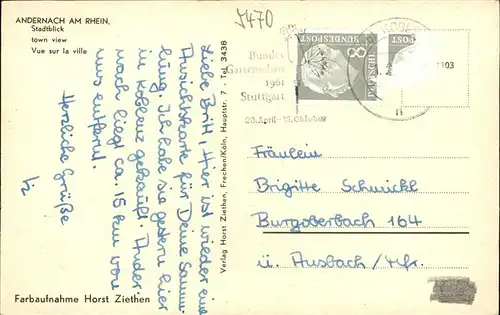 5470
ANDERNACH AM RHEIN,
Stadtblick
town view
Vue sur la ville
Liebe Britt, Hier ist wieder eine
Ansichtskarte für Deine Samm
lung. Ich habe sie gestern hier
in Koblenz gekauft. Ander-
nach liegt ca. 15 km von
uns entfernt.
Herzliche Grüße
Farbaufnahme Horst Ziethen
Verlag Horst Ziethen, Frechen/Köln, Hauptstr. 7 . Tel. 3438
Bundes
Gartenschau
1961
Stuttgart
28. April-15. Oktober
DEUTSCHE BUNDESPOST
8
POST
1103
Fräulein
Brigitte Schmickl
Burgoberbach 164
ü. Ansbach/Mfr.